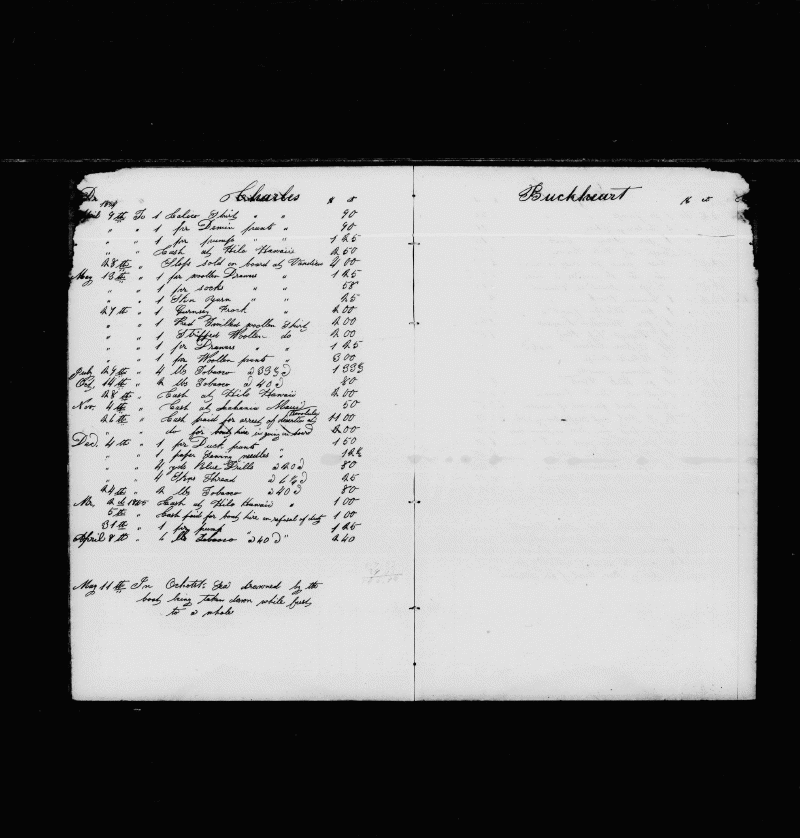 Dr Charles $ ct Buckheart $ ct
April 9th To 1 Calico Shirt " " 90
" " 1 pr Denim pants " 90
" " 1 pr pumps " " 1 25
" " Cash at Hilo Hawaii 2 50
28th " Slops sold on board at 4 00
May 13th " 1 pr woollen Drawers " 1 25
" " 1 pr socks " " 58
" " 1 Skn Yarn " " 25
27th " 1 Gurnsey Frock " 2 00
" " 1 Red Twilled woollen Shirt 2 00
" " 1 Stripped Woollen do 2 00
" " 1 pr Drawers " " 1 25
" " 1 pr Woollen pants " 3 00
July 27th " 4 lbs Tobacco
Oct. 14th " 2 lbs Tobacco @ 40 80
28th " Cash at Hilo Hawaii 2 00
Nov. 4th " Cash at Lahaina Maui 50
26th " Cash paid for arrest of deserters at Honolulu 1 00
" " do for boat hire in going on board 2 00
Dec. 4th " 1 pr Duck pants 1 50
" " 1 paper Sewing needles "
" " 4 yds Blue Drills @ 20 80
" " 4 Skns Thread 25
24th " 2 lbs Tobacco @ 40 80
2d 1865 Cash at Hilo Hawaii " 1 00
5th " Cash paid for boat hire on refusal of duty 1 00
31th " 1 pr pump 1 25
April 8th " 6 lbs Tobacco @ 40 " 2 40
May 11th In Ochotsk Sea drowned by the
boat being taken down while fast
to a whale